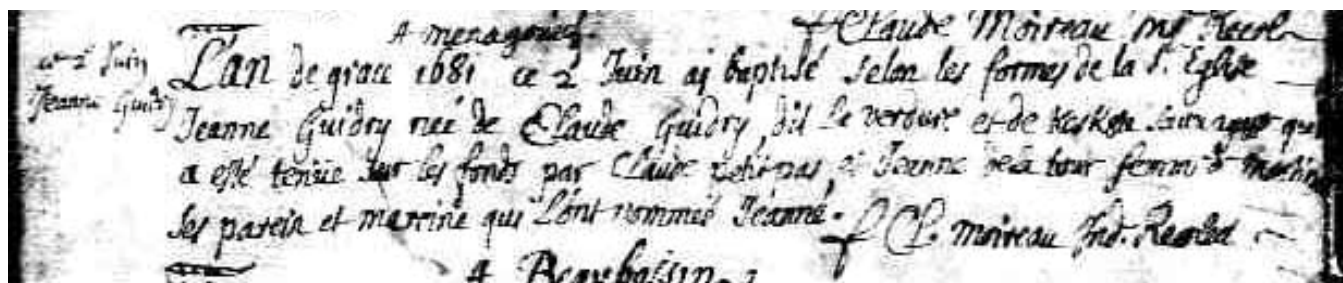 A menagoueh
f Claude Moireau Recol
ce 2 Juin
Jeanne Guidry
L'an de grace 1681 ce 2 Juin ai baptisé selon les formes de la S. Eglise
Jeanne Guidry née de Claude Guidry dit le verdure et de keskoa sauvagesse qui
a esté tenüe sur les fonds par Claude petitpas et Jeanne de la tour femme d martin
ses parein et mareine qui l'ont nommée Jeanne.
f Cl. moireau Ind. Recolet
A Beaubassin